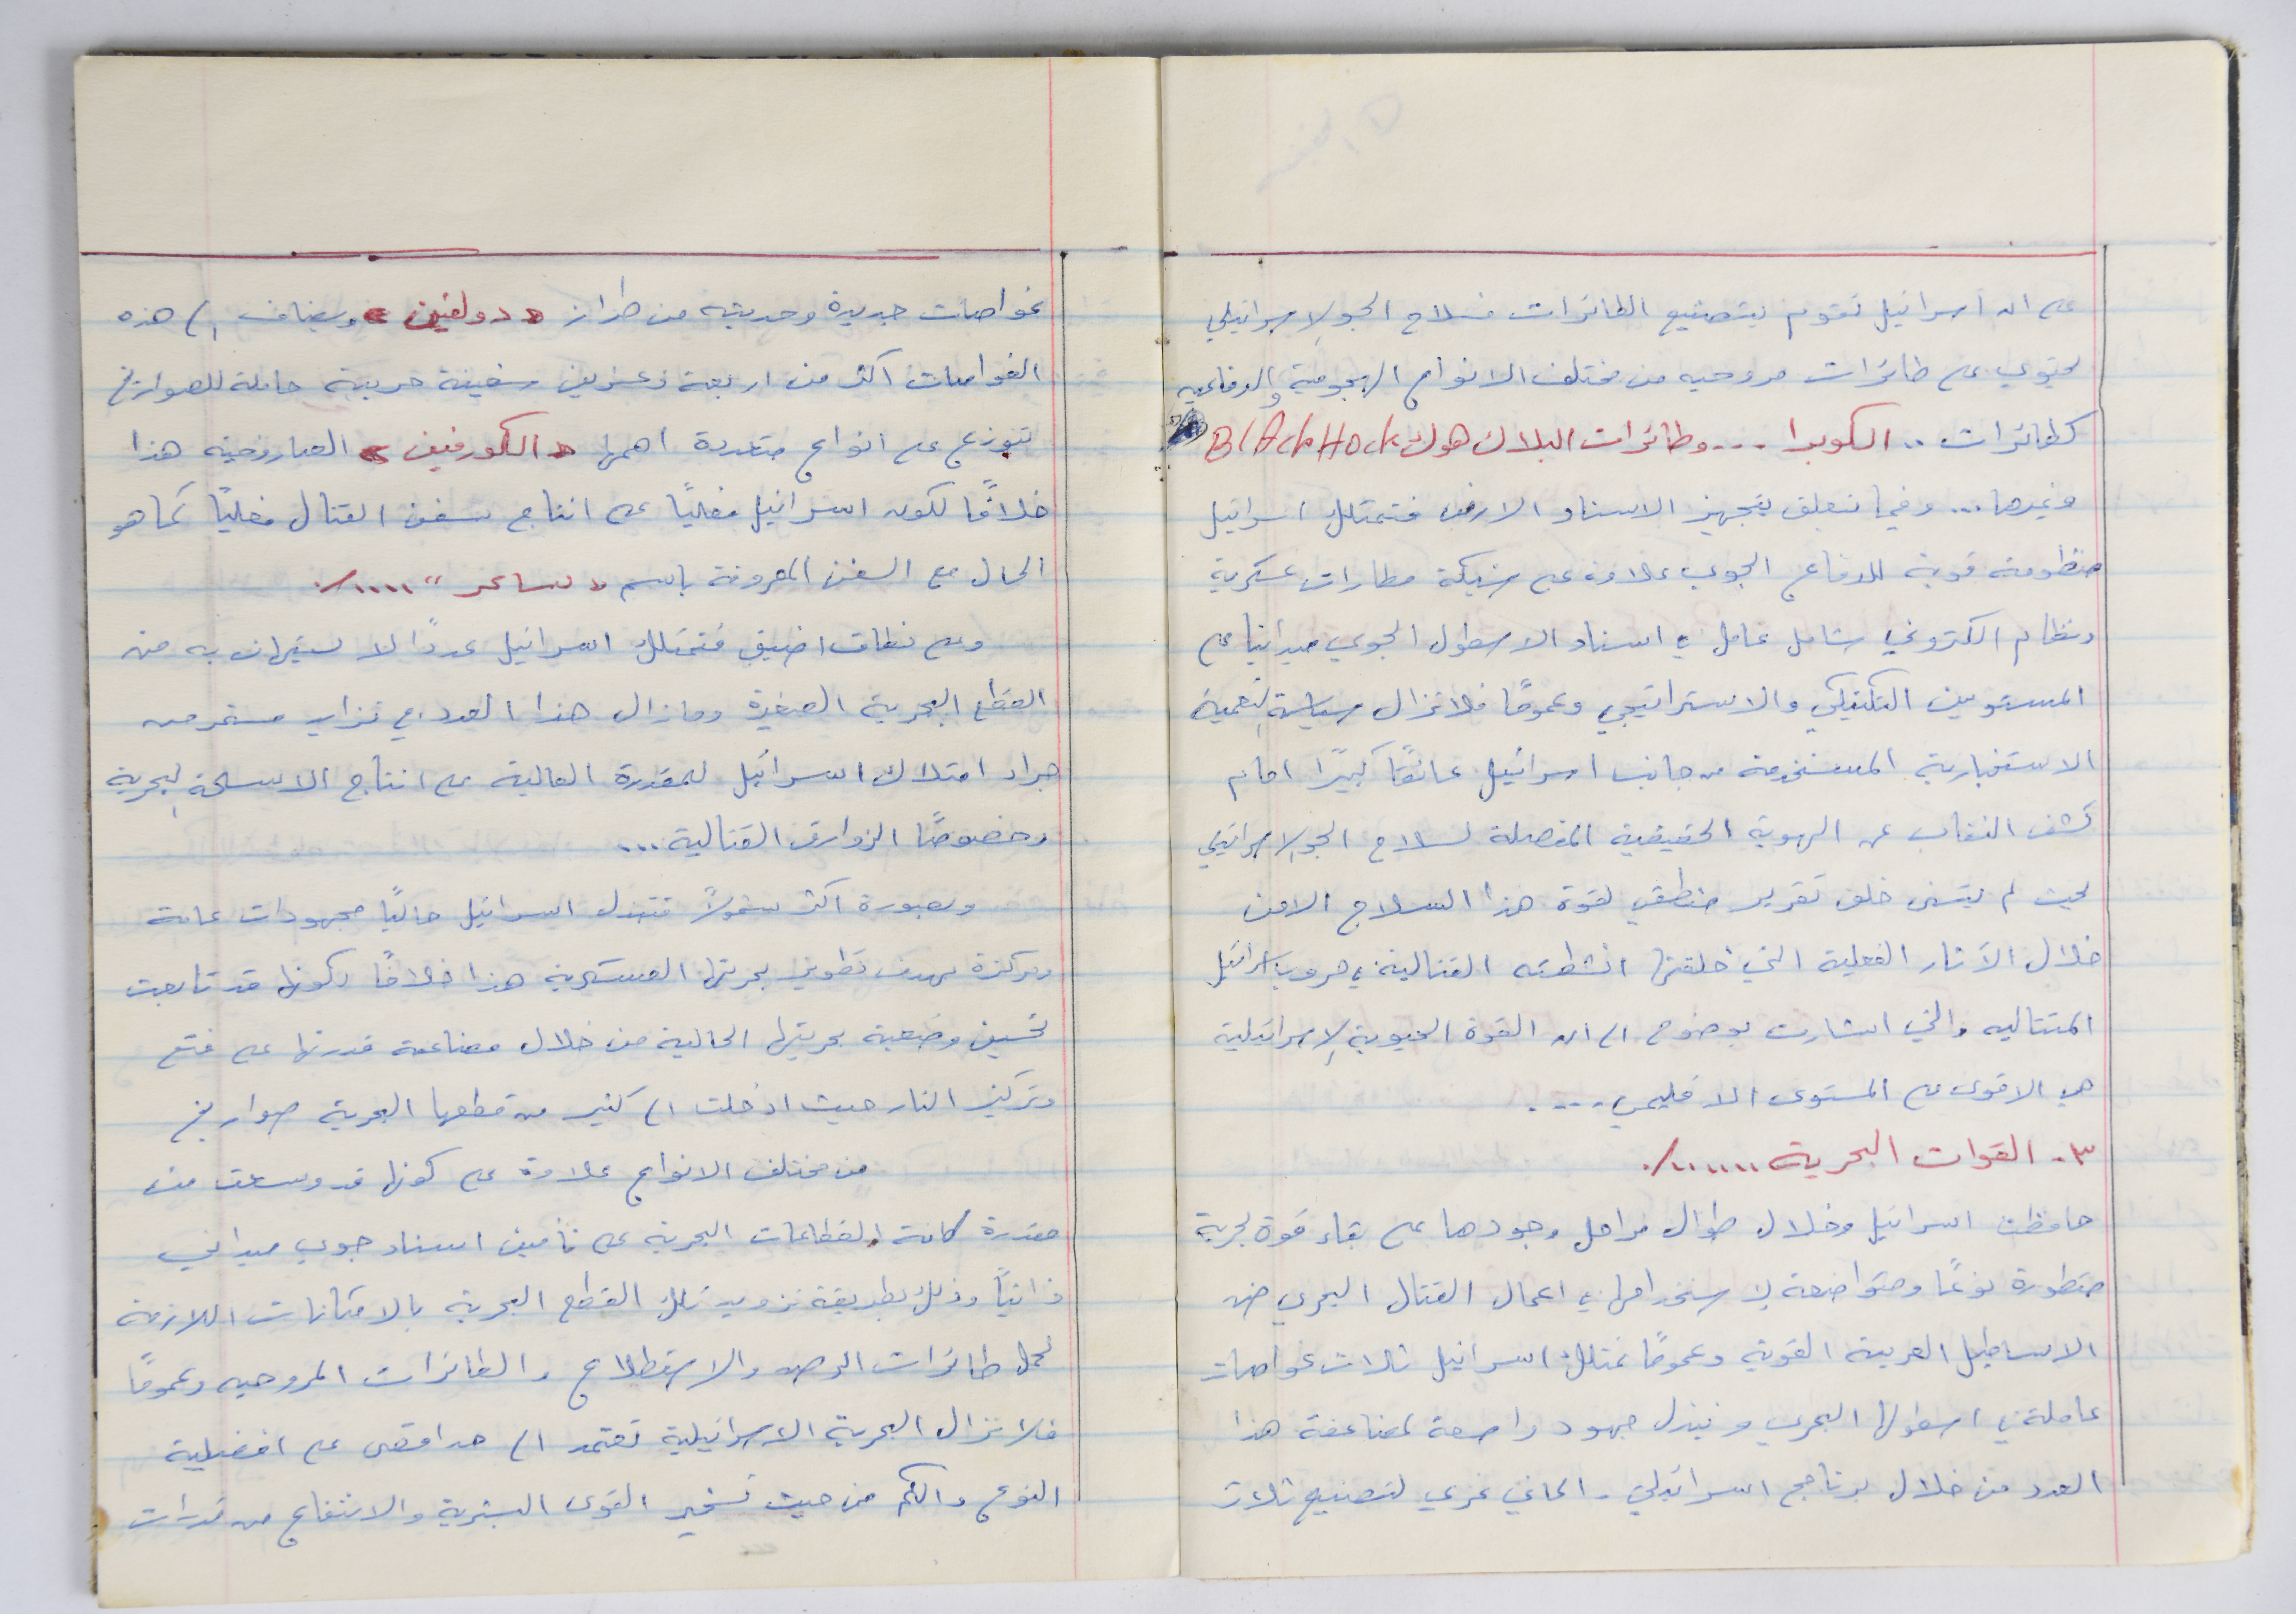 على ان اسرائيل تقوم بتصنيع الطائرات فسلاح الجو الاسرائيلي
يحتوي على طائرات مروحيه من مختلف الانواع الهجومية والدفاعيه
كطائرات .. الكوبرا ... وطائرات البلاك هوك BlAck Hock
وغيرها ... وفيما تتعلق بتجهيز الاسناد الارضي فتمتلك اسرائيل
منظومة قوية للدفاع الجوي علاوة على شبكة مطارات عسكرية
ونظام الكتروني شامل عامل في اسناد الاسطول الجوي ميدانيا على
المستويين التكتيكي والاستراتيجي وعمومًا فلا تزال سياسة التعمية
الاستخبارية المستخدمة من جانب اسرائيل عائقًا كبيرًا امام
كشف النقاب عن الهوية الحقيقية المفصلة لسلاح الجو الاسرائيلي
بحيث لم يتسنى خلق تقرير منطقي لقوة هذا السلاح الا من
خلال الآثار الفعلية التي خلفتها انشطته القتالية في حروب اسرائيل
المتتاليه والتي اشارت بوضوح الى ان القوة الجوية الاسرائيلية
هي الاقوى على المستوى الاقليمي ....
٣- القوات البحرية ....../.
حافظت اسرائيل وخلال طوال مراحل وجودها على بقاء قوة بحرية
متطورة نوعًا ومتواضعة لاستخدامها في اعمال القتال البحري ضد
الاساطيل العربية القوية وعمومًا تمتلك اسرائيل ثلاث غواصات
عاملة في اسطولها البحري وتبذل جهود واسعة لمضاعفة هذا
العدد من خلال برنامج اسرائيلي - الماني غربي لتصنيع ثلاث
غواصات جديدة وحديثه من طراز « دولفين » ويضاف الى هذه
الغواصات اكثر من اربعة وعشرين سفينة حربية حاملة للصواريخ
تتوزع على انواع متعددة اهمها « الكورفين » الصاروخية هذا
خلافًا لكون اسرائيل فعليًا على انتاج سفن القتال محليًا كما هو
الحال مع السفن المعروفة باسم « ساعر " ..../.
وعلى نطاق اضيق فتمتلك اسرائيل عددًا لا يستهان به من
القطع البحرية الصغيرة ومازال هذا العدد في تزايد مستمر من
جراء امتلاك اسرائيل للمقدرة العالية على انتاج الاسلحة البحرية
وخصوصًا الزوارق القتالية ...
وبصورة اكثر شمولاً فتبذل اسرائيل حاليًا مجهودات عامة
ومركزة بهدف تطوير بحريتها العسكرية هذا خلافًا لكونها قد تابعت
تحسين وضعية بحريتها الحالية من خلال مضاعفة قدرتها على فتح
وتركيز النار حيث ادخلت الى كثير من قطعها البحرية صواريخ
من مختلف الانواع علاوة على كونها قد وسعت من
مقدرة كافة القطاعات البحرية على تأمين اسناد جوي ميداني
ذاتيًا وذلك بطريقة تزويد تلك القطع البحرية بالامكانات اللازمة
لحمل طائرات الرصد والاستطلاع والطائرات المروحيه وعمومًا
فلا تزال البحرية الاسرائيلية تعتمد الى حد اقصى على افضلية
النوع والكم من حيث تسخير القوى البشرية والانتفاع من قدرات